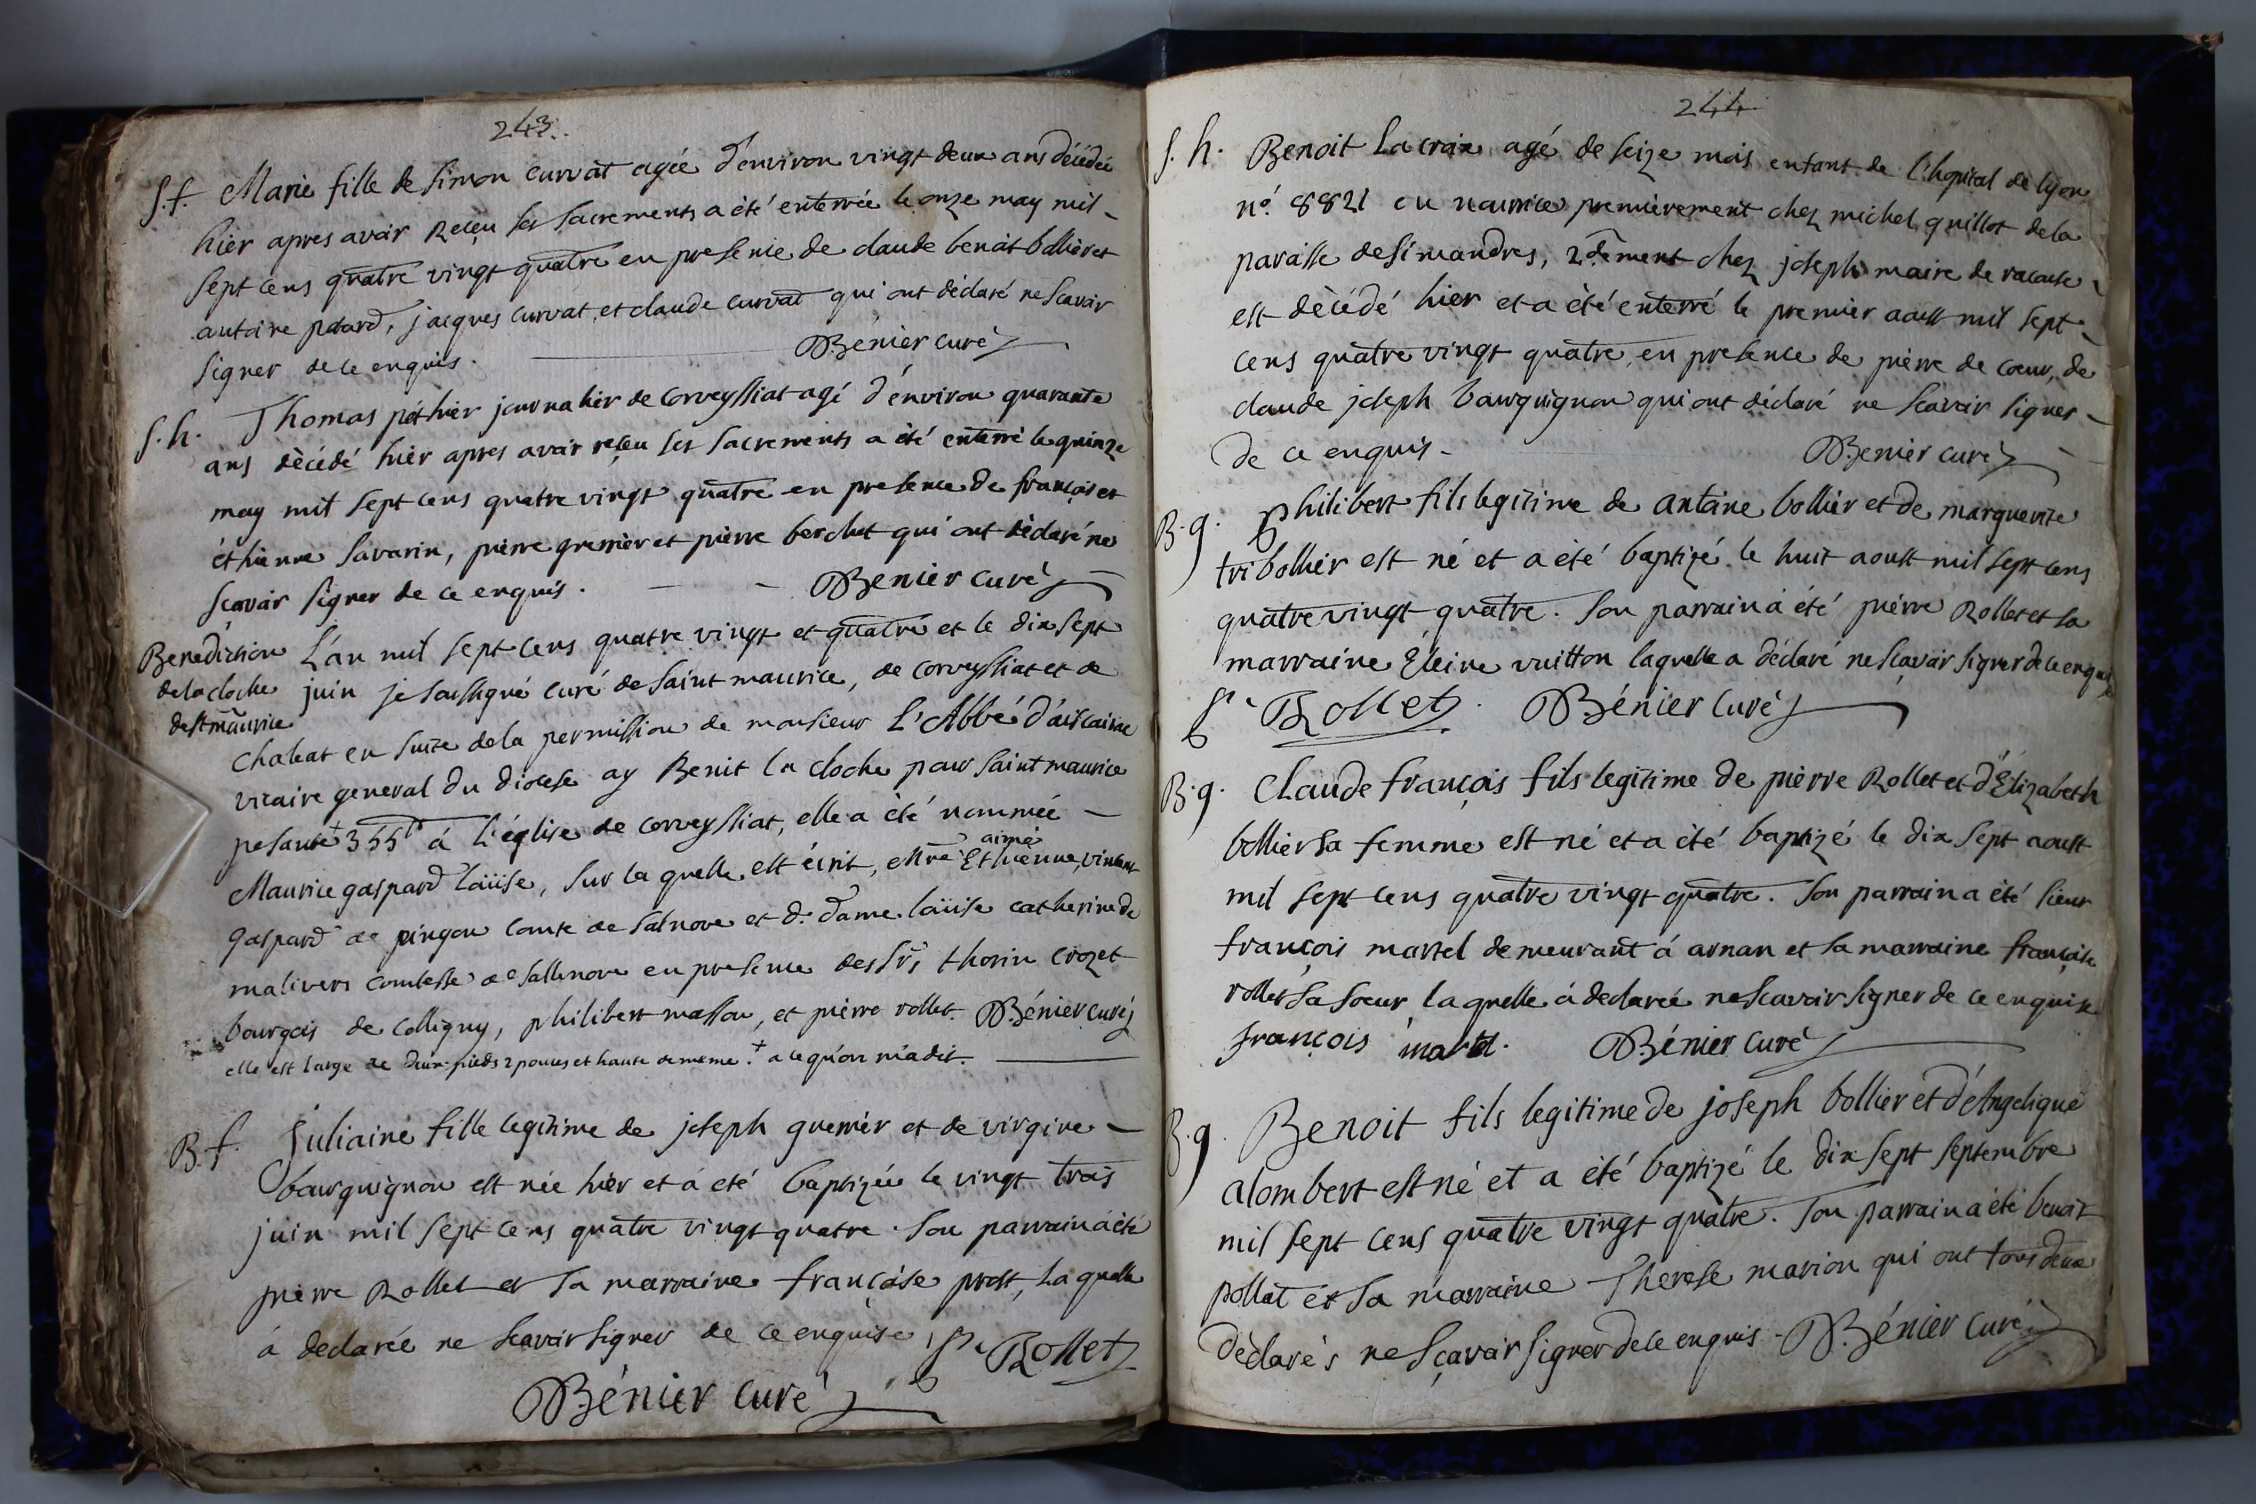 243.
S.f. Marie fille de Simon curvat agée d'environ vingt deux ans décédée
hier apres avoir Reçeu ses sacrements a été enterrée le onze may mil
sept cens quatre vingt quatre en presence de claude benoit bollier et
antoine potard, jacques curvat, et claude curvat qui ont déclaré ne scavoir
signer de ce enquis. Bénier curé
S.h. Thomas péthier journalier de Corveyssiat agé d'environ quarante
ans décédé hier apres avoir reçeu ses sacrements a été enterré le quinze
may mil sept cens quatre vingt quatre en presence de françois et
éthienne Savarin, pierre grenier et pierre berchet qui ont déclaré ne
sçavoir signer de ce enquis. Benier curé
Benediction L'an mil sept cens quatre vingt et quatre et le dix sept
de la cloche juin je soussigné curé de Saint maurice, de corveyssiat et de
de st maurice
chaleat en suite de la permission de monsieur L'Abbé
vicaire general du diocese ay Benit la cloche pour Saint maurice
pesante + 355 à l'église de corveyssiat, elle a été nommée
aimé
Maurice gaspard loüise, sur la quelle est écrit, Mre Ethienne, vincent
gaspard de pingon comte de Salnove et de dame loüise catherine de
malivers comtesse de Sallenove en presence des srs thorin crozet
bourgois de Colligny, philibert masson, et pierre rollet. Bénier curé
elle est large de deux pieds 2 pouces et haute de meme. + a ce qu'on m'a dit.
B.f. Juliaine fille legitime de joseph grenier et de virgine
bourguignon est née hier et a été baptizée le vingt trois
juin mil sept cens quatre vingt quatre. Son parrain à été
pierre Rollet et sa marraine françoise prost, la quelle
á declarée ne scavoir signer de ce enquise, Pe Rollet
Bénier curé
244
S.h. Benoit Lacroix agé de seize mois enfant de l'hopital de lyon
n°. 8821 en nourrice premièrement chez michel guillot de la
paroisse de simandres, 2dement chez joseph maire de racouse
est décédé hier et a été enterré le premier aoust mil sept
cens quatre vingt quatre en presence de pierre de coeur, de
claude joseph bourguignon qui ont déclaré ne scavoir signer
de ce enquis. Benier curé
B.g. philibert fils legitime de antoine bollier et de marguerite
tribollier est né et a été baptizé le huit aoust mil sept cens
quatre vingt quatre. Son parrain à été pierre Rollet et sa
marraine Eleine vuitton laquelle a déclaré ne sçavoir signer de ce enquise
Pe Rollet. Bénier Curé
B.g. Claude françois fils legitime de pierre Rollet et d'Elizabeth
bollier sa femme est né et a été baptizé le dix sept aoust
mil sept cens quatre vingt quatre. Son parrain a été sieur
françois martel demeurant á arnan et sa marraine françoise
rollet sa soeur laquelle á declarée ne scavoir signer de ce enquise
françois martel. Bénier curé
B.g. Benoit fils legitime de joseph bollier et d'Angelique
alombert est né et a été baptizé le dix sept septembre
mil sept cens quatre vingt quatre. Son parrain a été benoit
pollat et sa marraine Therese marion qui ont tous deux
déclarés ne sçavoir signer de ce enquis. Bénier curé